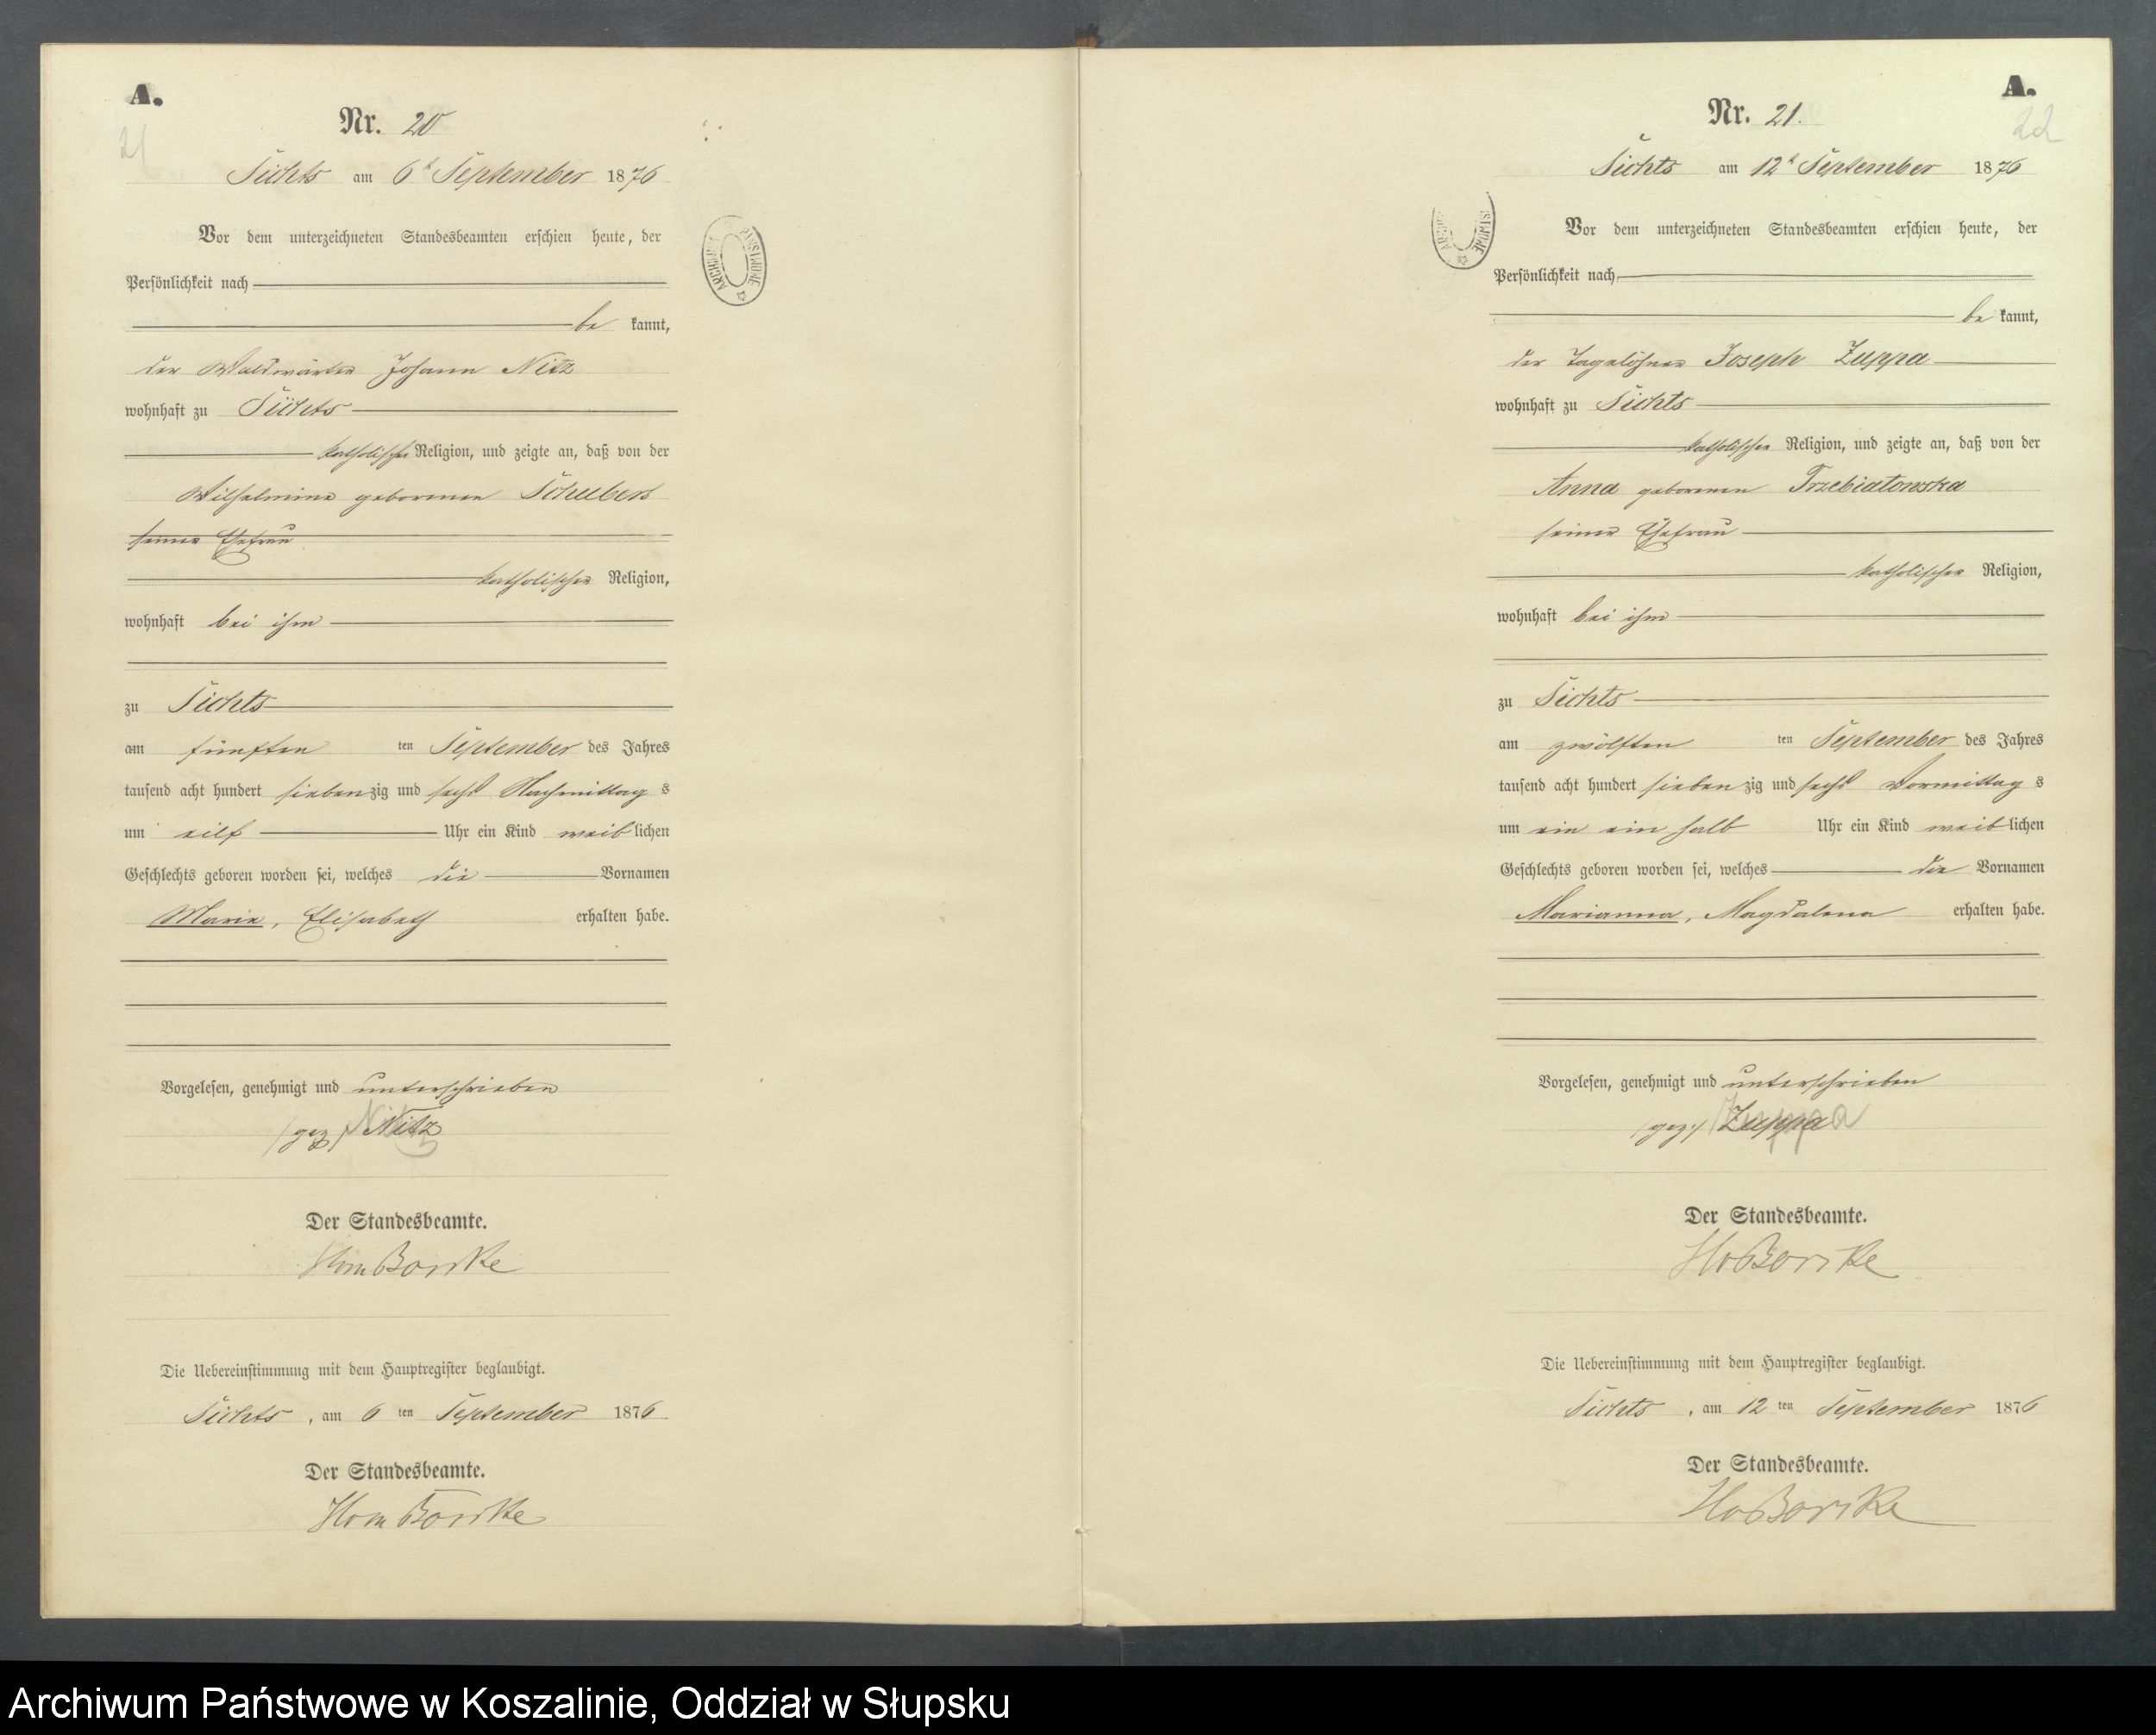 A.
21
Nr. 20
Sichts am 6t September 1876
Vor dem unterzeichneten Standesbeamten erschien heute, der
Persönlichkeit nach
be kannt,
der Waldwärter Johann Nitz
wohnhaft zu Sichts
katholischer Religion, und zeigte an, daß von der
Wilhelmine geborenen Schubert
seiner Ehefrau
katholischer Religion,
wohnhaft bei ihm
zu Sichts
am fünften ten September des Jahres
tausend acht hundert sieben zig und sechs Nachmittag s
um eilf Uhr ein Kind weib lichen
Geschlechts geboren worden sei, welches die Vornamen
Marie, Elisabeth erhalten habe.
Vorgelesen, genehmigt und unterschrieben
(gez) Nitz
Der Standesbeamte.
Die Uebereinstimmung mit dem Hauptregister beglaubigt.
Sichts, am 6 ten September 1876
Der Standesbeamte.
A.
22
Nr. 21.
Sichts am 12t September 1876
Vor dem unterzeichneten Standesbeamten erschien heute, der
Persönlichkeit nach
be kannt,
der Tagelöhner Joseph Zuppa
wohnhaft zu Sichts
katholischer Religion, und zeigte an, daß von der
Anna geborenen Trzebiatowska
seiner Ehefrau
katholischer Religion,
wohnhaft bei ihm
zu Sichts
am zwölften ten September des Jahres
tausend acht hundert sieben zig und sechs Vormittag s
um ein ein halb Uhr ein Kind weib lichen
Geschlechts geboren worden sei, welches die Vornamen
Marianna, Magdalena erhalten habe.
Vorgelesen, genehmigt und unterschrieben
(gez.) Zuppa
Der Standesbeamte.
Die Uebereinstimmung mit dem Hauptregister beglaubigt.
Sichts, am 12 ten September 1876
Der Standesbeamte.
Archiwum Państwowe w Koszalinie, Oddział w Słupsku